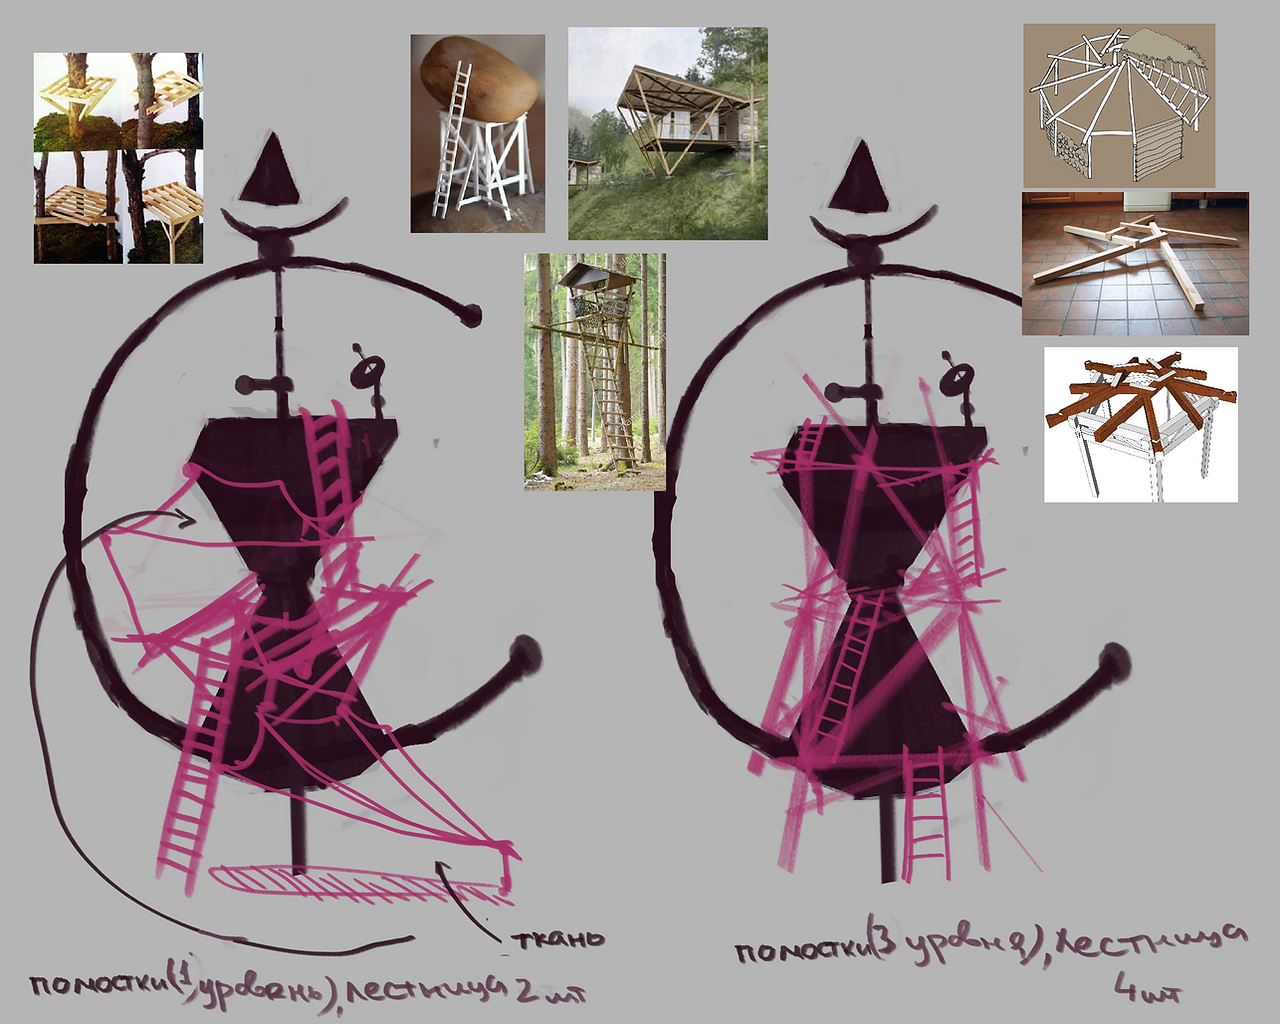 ткань
помостки(1 уровень), лестница 2 шт
помостки(3 уровня), лестница
4 шт